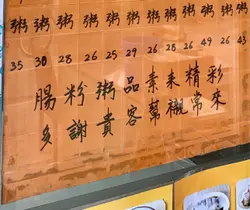 粥 粥 粥 粥 粥 粥 粥 粥 粥 粥 粥 粥
35 30 28 26 25 29 26 28 26 49 26 43
腸粉粥品素来精彩
多謝貴客幫襯常來